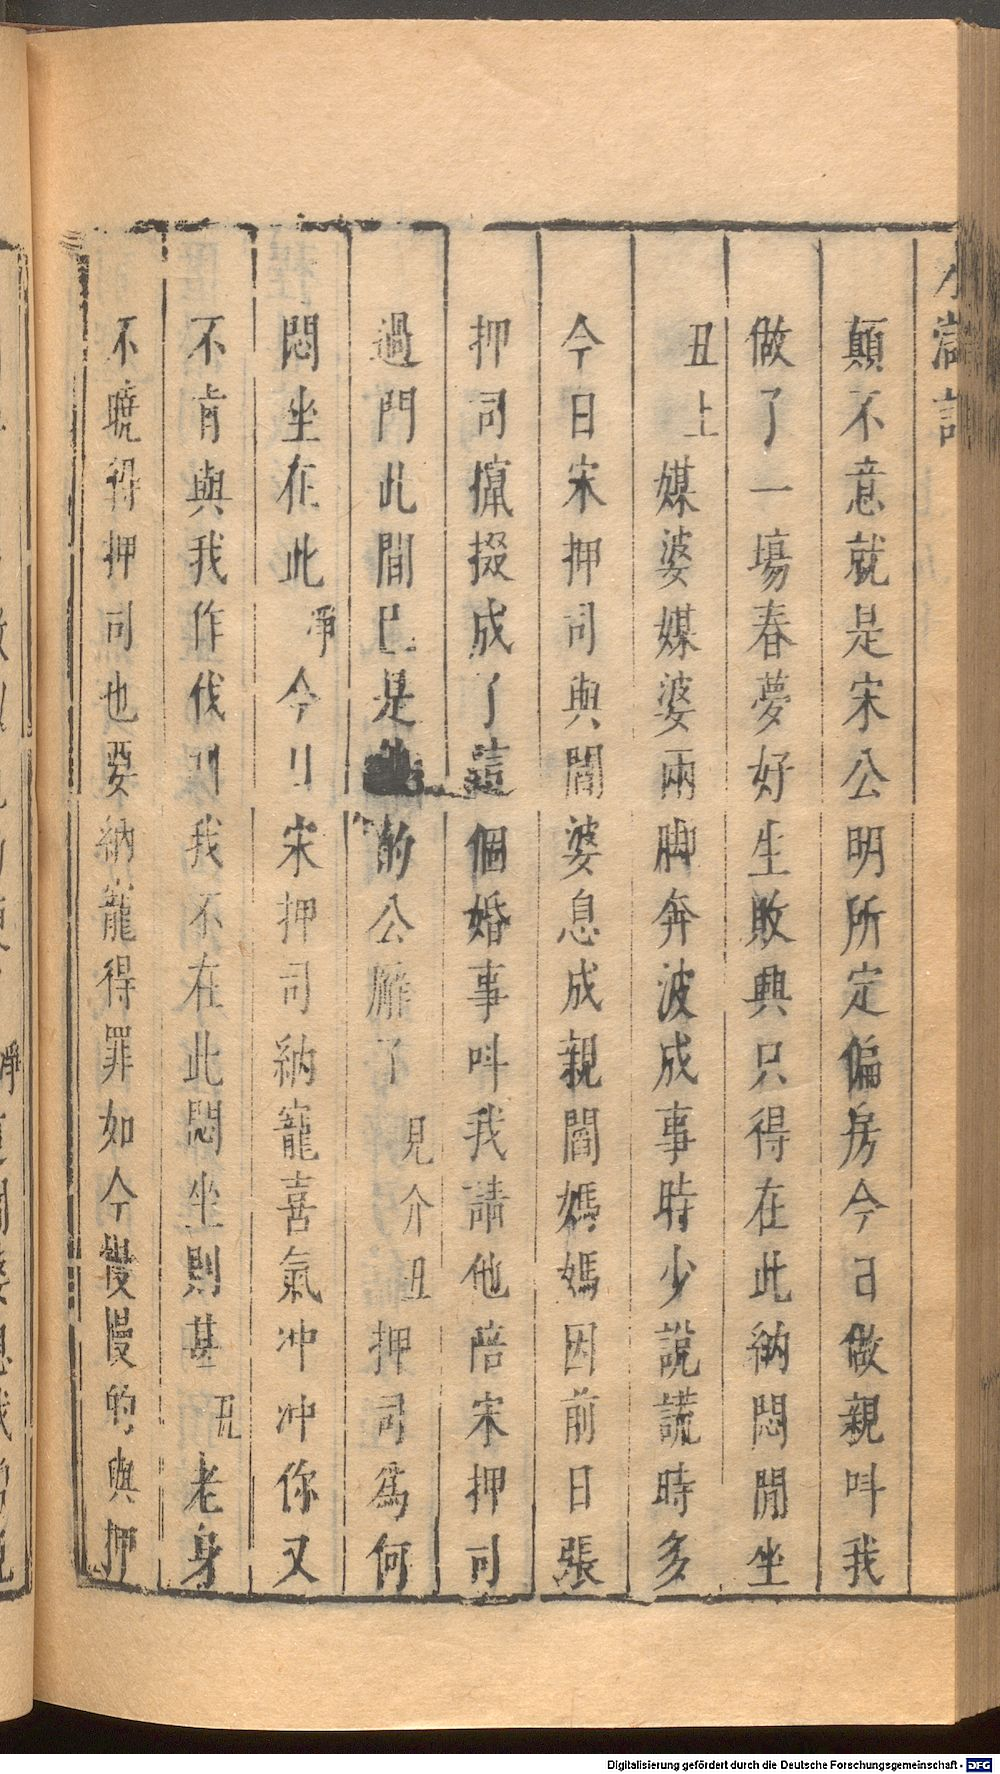 水滸記
顛不意就是宋公明所定偏房今日做親呌我
做了一塲春夢好生敗興只得在此納悶閒坐
丑上媒婆媒婆兩脚奔波成事時少說謊時多
今日宋押司與閻婆息成親閻媽媽因前日張
押司攛掇成了這個婚事呌我請他陪宋押司
過門此間已是的公廨了見介丑押司爲何
悶坐在此淨今日宋押司納寵喜氣冲冲你又
不肯與我作伐則我不在此悶坐則甚丑老身
不曉得押司也要納寵得罪如今慢慢的與押
Digitalisierung gefördert durch die Deutsche Forschungsgemeinschaft - DFG